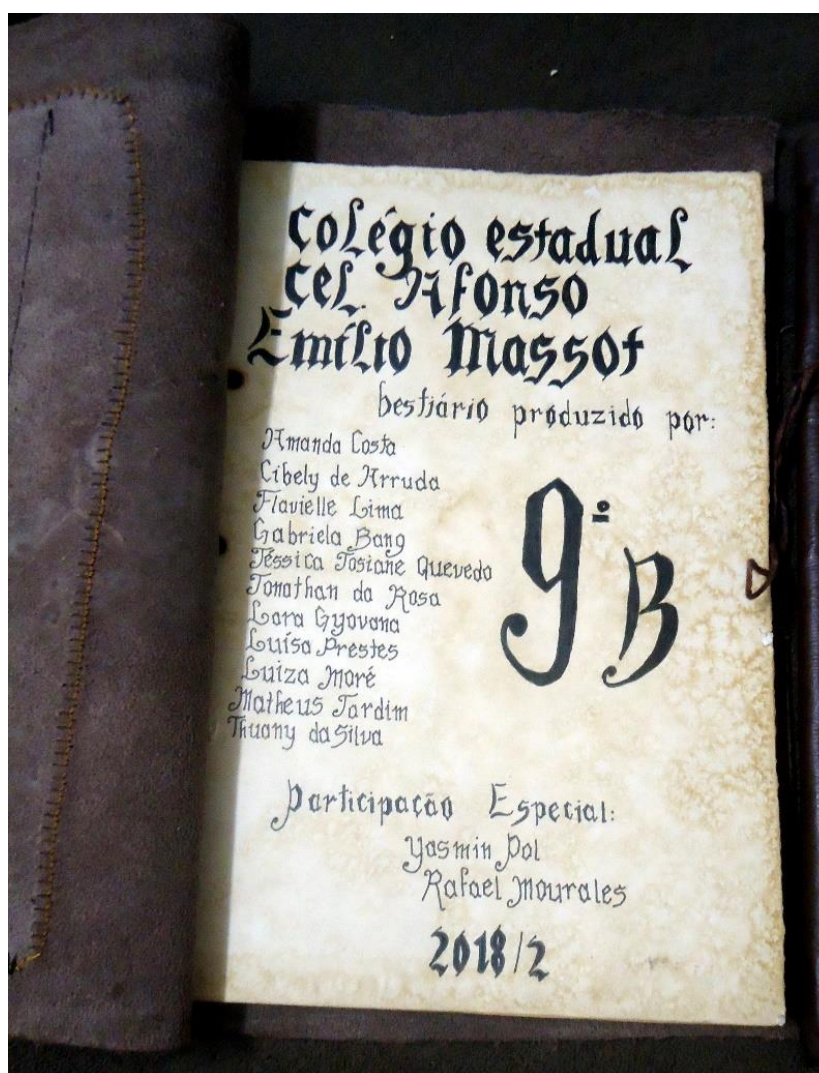 Colégio estadual
Cel. Afonso
Emílio Massot
bestiário produzido por:
Amanda Costa
Cibely de Arruda
Flavielle Lima
Gabriela Bang
Jéssica Josiane Quevedo
Jonathan da Rosa
Lara Gyovana
Luísa Prestes
Luiza Moré
Matheus Jardim
Thuany da Silva
9º B
Participação Especial:
Yasmin Pol
Rafael Mourales
2018/2